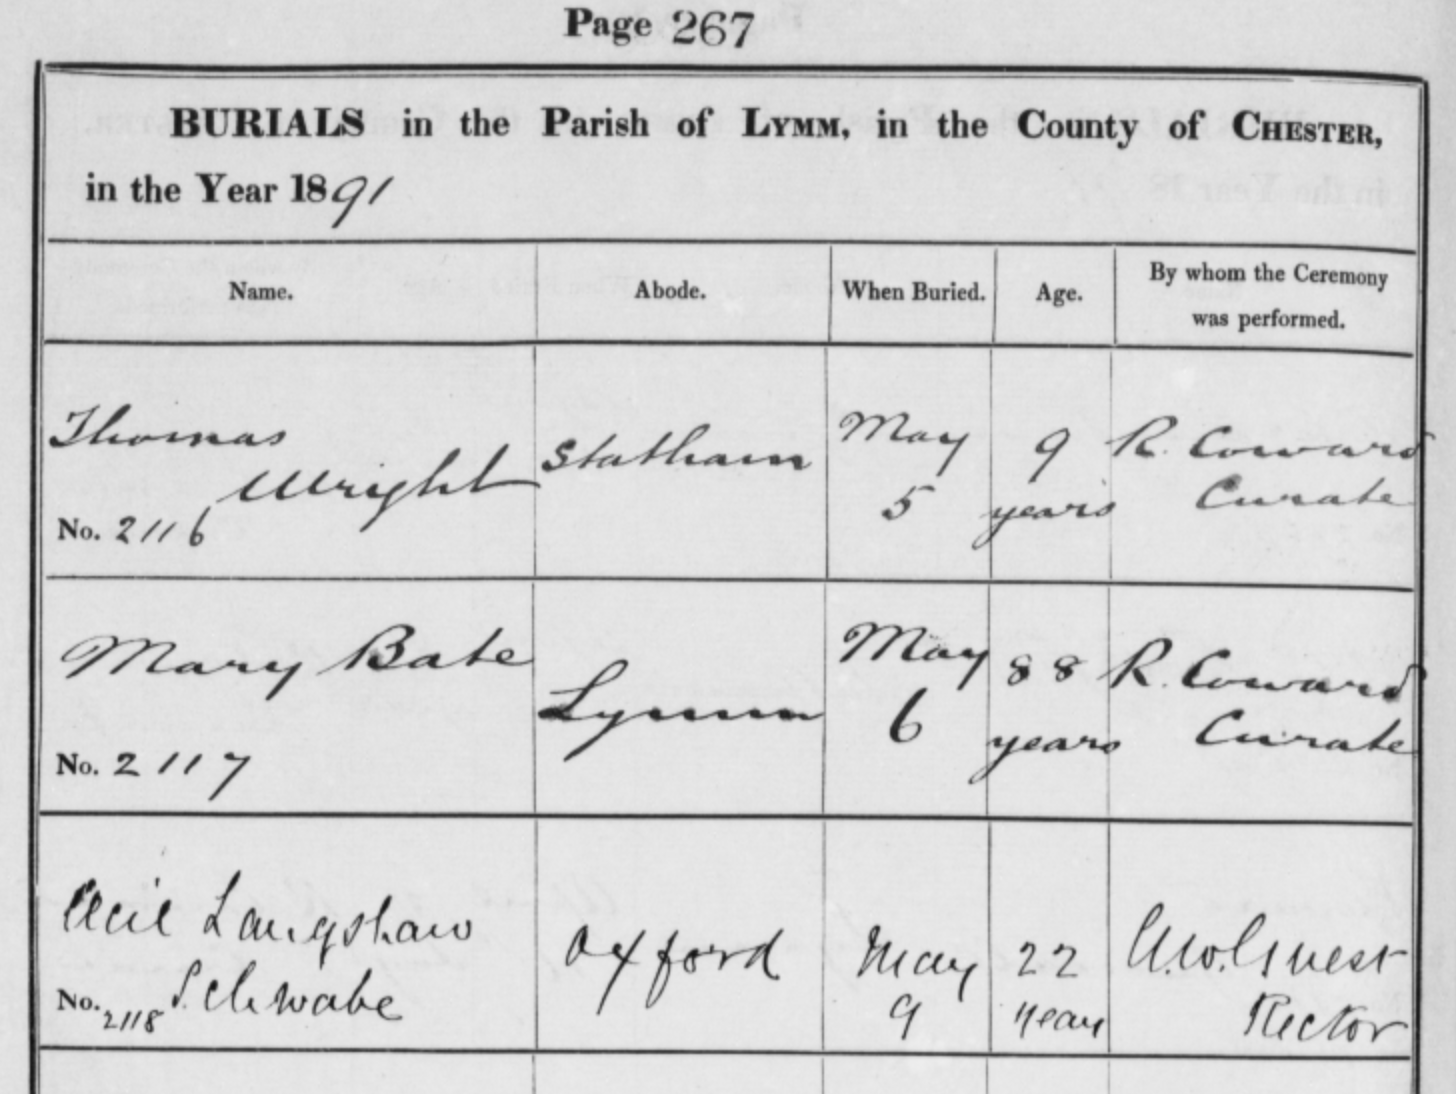 Page 267
BURIALS in the Parish of LYMM, in the County of CHESTER,
in the Year 1891
Name. Abode. When Buried. Age. By whom the Ceremony
was performed.
Thomas
Wright
No. 2116
Statham
May
5
9
years
R. Coward
Curate
Mary Bate
No. 2117
Lymm
May
6
88
years
R. Coward
Curate
Cecil Langshaw
Schwabe
No. 2118
Oxford
May
9
22
years
Rector